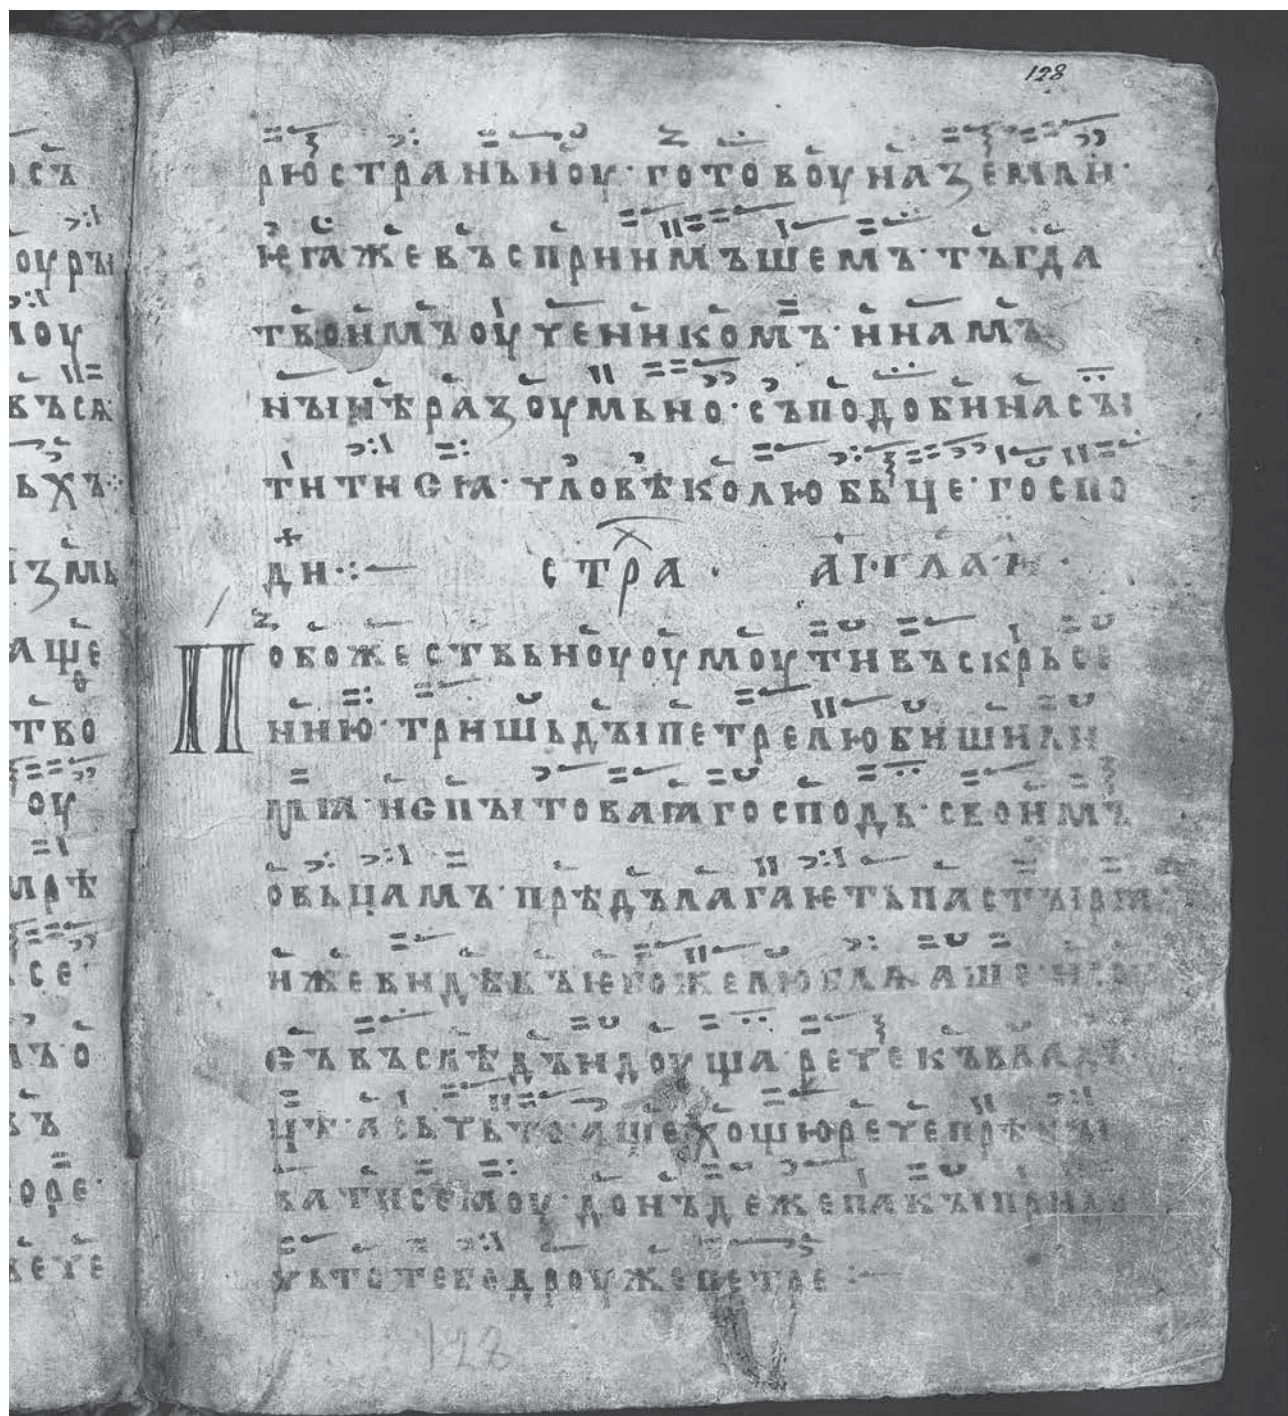 128
рюстраньноу·готовоуназемли·
ѥгажевъсприимъшемъ·тъгда
твоимъоученикомъ·инамъ
нынѣразоумьно·съподобинасъı
титисѧ·чловѣколюбьче·госпо
ди·:— стра· аı·гла·и·
Побожествьноуоумоутивъскрьсе
нию·тришьдъıпетрелюбишили
мѧ·испъıтоваꙗгосподь·своимъ
овьцамъ·прѣдълагаѥтьпастъıрѧ·
ижевидѣвъѥгожелюблѧаше·
съвъслѣдъидоуща·речекъвлады
цѣ·асьчьто·ащехощюречепрѣбы
ватисемоу·доньдежепакъıприидоу
чьтотебедроужепетре·:—
128
осъ
оуръı
въсѧ
ьхъ·:
изм
аще
ство
оу
мрѣ
се·
лъо
въ
оре·
жече